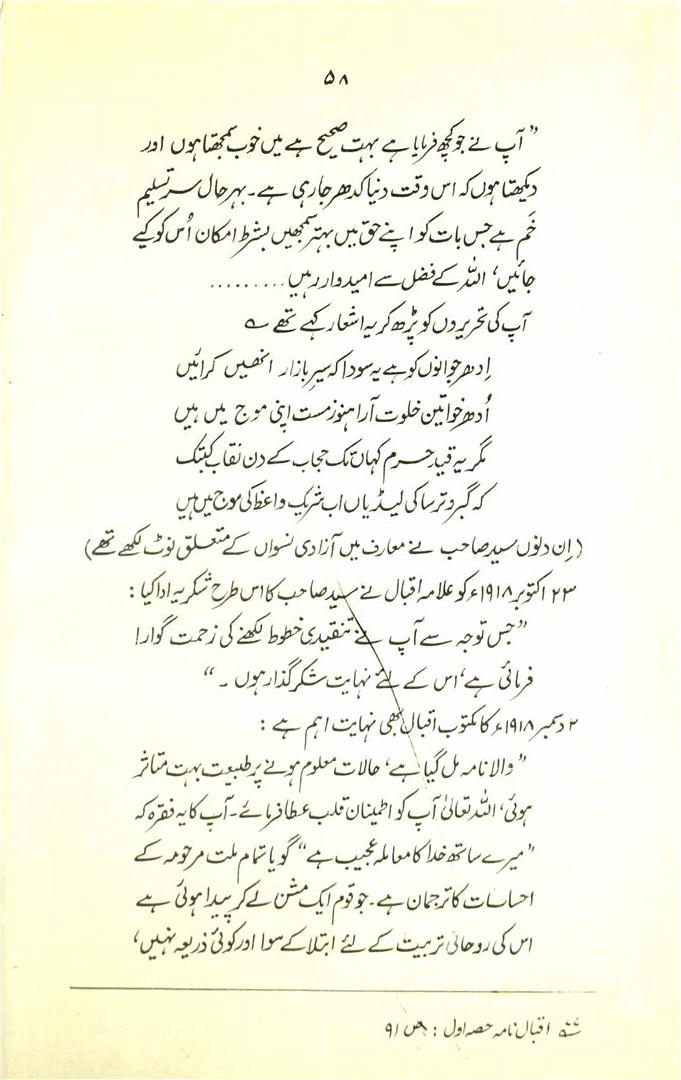 ۵۸
”آپ نے جو کچھ فرمایا ہے بہت صحیح ہے میں خوب سمجھتا ہوں اور
دیکھتا ہوں کہ اس وقت دنیا کدھر جا رہی ہے۔ بہر حال سر تسلیم
خَم ہے جس بات کو اپنے حق میں بہتر سمجھیں بشرط امکان اُس کو کیے
جائیں، اللہ کے فضل سے امیدوار رہیں.........
آپ کی تحریروں کو پڑھ کر یہ اشعار کہے تھے ؎
اِدھر جوانوں کو ہے یہ سودا کہ سیرِ بازار انھیں کرائیں
اُدھر خواتین خلوت آرا ہنوز مست اپنی موج میں ہیں
مگر یہ قیدِ حرم کہاں تک حجاب کے دن نقاب کبتک
کہ گبر و ترسا کی لیڈیاں اب شریک واعظ کی موج میں ہیں
(اِن دنوں سید صاحب نے معارف میں آزادی نسواں کے متعلق نوٹ لکھے تھے)
۲۳ اکتوبر ۱۹۱۸ء کو علامہ اقبال نے سید صاحب کا اس طرح شکریہ ادا کیا :
”جس توجہ سے آپ نے تنقیدی خطوط لکھنے کی زحمت گوارا
فرمائی ہے، اس کے لئے نہایت شکر گذار ہوں ۔“
۲ دسمبر ۱۹۱۸ء کا مکتوب اقبال بھی نہایت اہم ہے :
”والا نامہ مل گیا ہے، حالات معلوم ہونے پر طبیعت بہت متاثر
ہوئی، اللہ تعالیٰ آپ کو اطمینان قلب عطا فرمائے۔ آپ کا یہ فقرہ کہ
”میرے ساتھ خدا کا معاملہ عجیب ہے“ گویا تمام ملت مرحومہ کے
احساسات کا ترجمان ہے۔ جو قوم ایک مشن لے کر پیدا ہوئی ہے
اس کی روحانی تربیت کے لئے ابتلا کے سوا اور کوئی ذریعہ نہیں،
اقبال نامہ حصہ اول : ص ۹۱